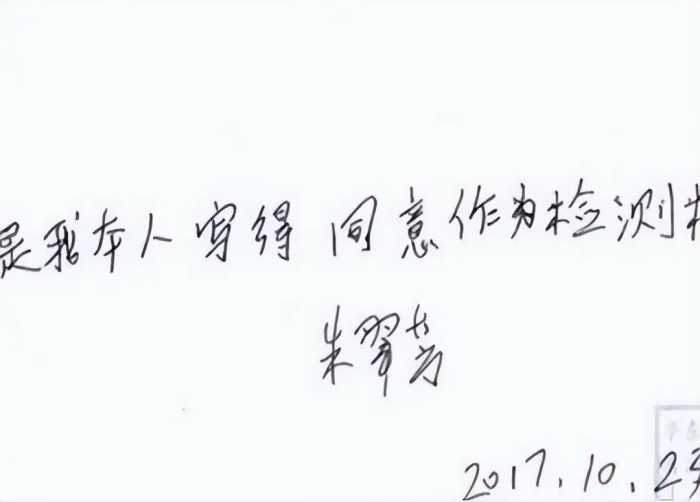 是我本人写得 同意作为检测
朱翠芳
2017.10.23